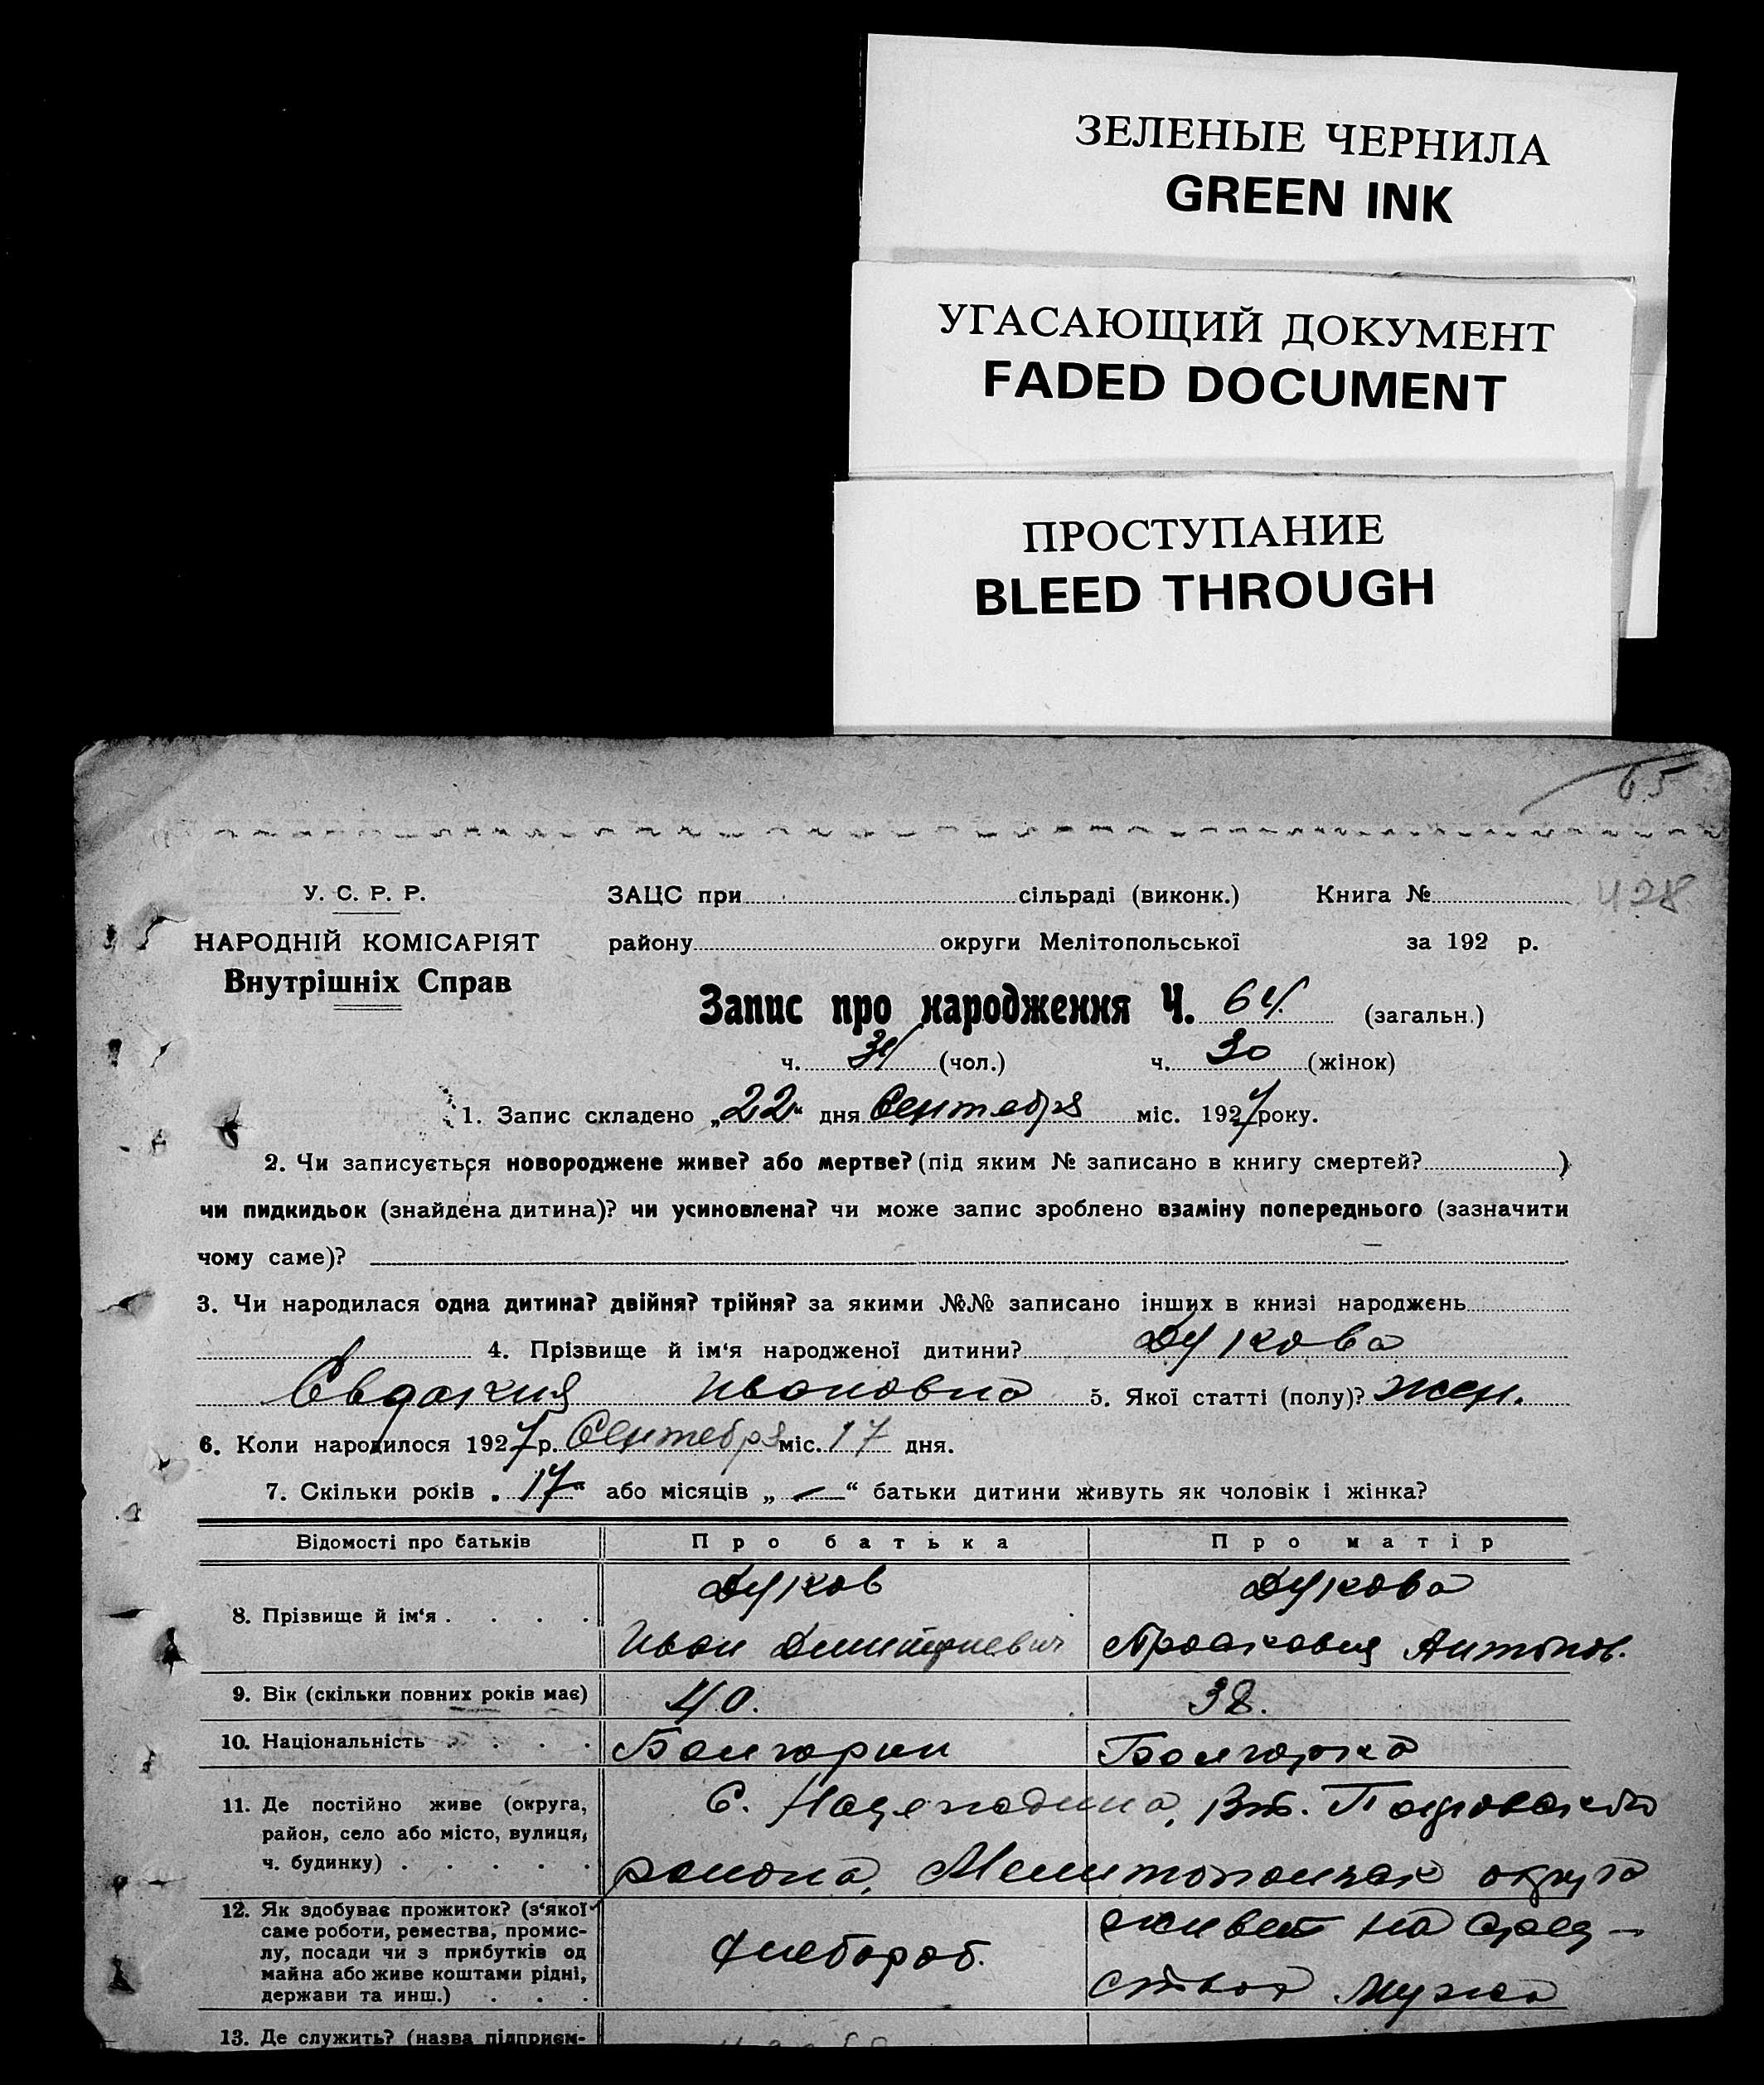 ЗЕЛЕНЫЕ ЧЕРНИЛА
GREEN INK
УГАСАЮЩИЙ ДОКУМЕНТ
FADED DOCUMENT
ПРОСТУПАНИЕ
BLEED THROUGH
65
428
У. С. Р. Р. ЗАЦС при сільраді (виконк.) Книга №
НАРОДНІЙ КОМІСАРІЯТ району округи Мелітопольської за 192 р.
Внутрішніх Справ
Запис про народження Ч. 64. (загальн.)
ч. 34 (чол.) ч. 30 (жінок)
1. Запис складено „22“ дня Сентября міс. 1927 року.
2. Чи записується новороджене живе? або мертве? (під яким № записано в книгу смертей? )
чи пидкидьок (знайдена дитина)? чи усиновлена? чи може запис зроблено взаміну попереднього (зазначити
чому саме)? —
3. Чи народилася одна дитина? двійня? трійня? за якими №№ записано інших в книзі народжень
4. Прізвище й ім‘я народженої дитини? Дукова
Евдокия Ивановна 5. Якої статті (полу)? Жен.
6. Коли народилося 1927 р. Сентября міс. 17 дня.
7. Скільки років „17“ або місяців „—“ батьки дитини живуть як чоловік і жінка?
Відомості про батьків Про батька Про матір
8. Прізвище й ім‘я . . . . Дуков Дукова
Иван Дмитриевич Прасковия Антонов.
9. Вік (скільки повних років має) 40. 38.
10. Національність . . . . Болгарин Болгарка
11. Де постійно живе (округа, район, село або місто, вулиця, ч. будинку) . . . . . С. Вт. района, Мелитопольск округа
12. Як здобуває прожиток? (з‘якої саме роботи, ремества, промислу, посади чи з прибутків од майна або живе коштами рідні, держави та инш.) . . . Хлебороб. живет на сред-
ства мужа
13. Де служить? (назва підприєм-